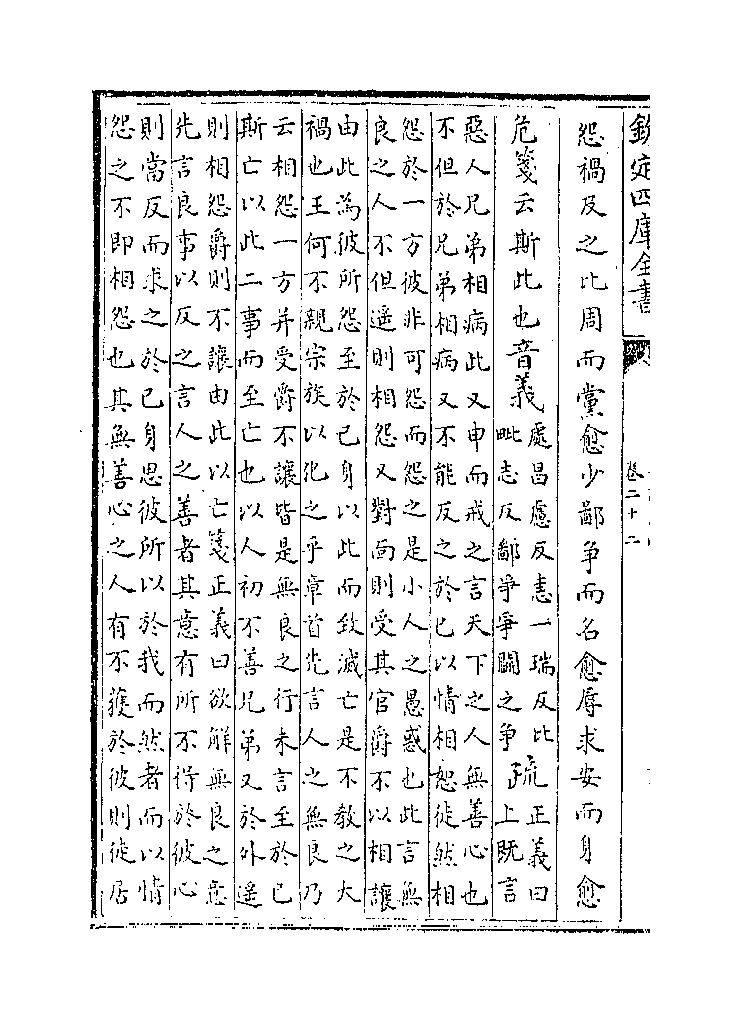 欽定四庫全書
卷二十二
怨禍及之比周而黨愈少鄙爭而名愈辱求安而身愈
危箋云斯此也音義處昌慮反恚一瑞反比毗志反鄙爭爭鬬之爭疏正義曰上既言
惡人兄弟相病此又申而戒之言天下之人無善心也
不但於兄弟相病又不能反之於已以情相恕徒然相
怨於一方彼非可怨而怨之是小人之愚惑也此言無
良之人不但遥則相怨又對面則受其官爵不以相讓
由此為彼所怨至於已身以此而致滅亡是不教之大
禍也王何不親宗族以化之乎章首先言人之無良乃
云相怨一方并受爵不讓皆是無良之行末言至於已
斯亡以此二事而至亡也以人初不善兄弟又於外遥
則相怨爵則不讓由此以亡箋正義曰欲解無良之意
先言良事以反之言人之善者其意有所不得於彼心
則當反而求之於已身思彼所以於我而然者而以情
怨之不即相怨也其無善心之人有不獲於彼則徒居